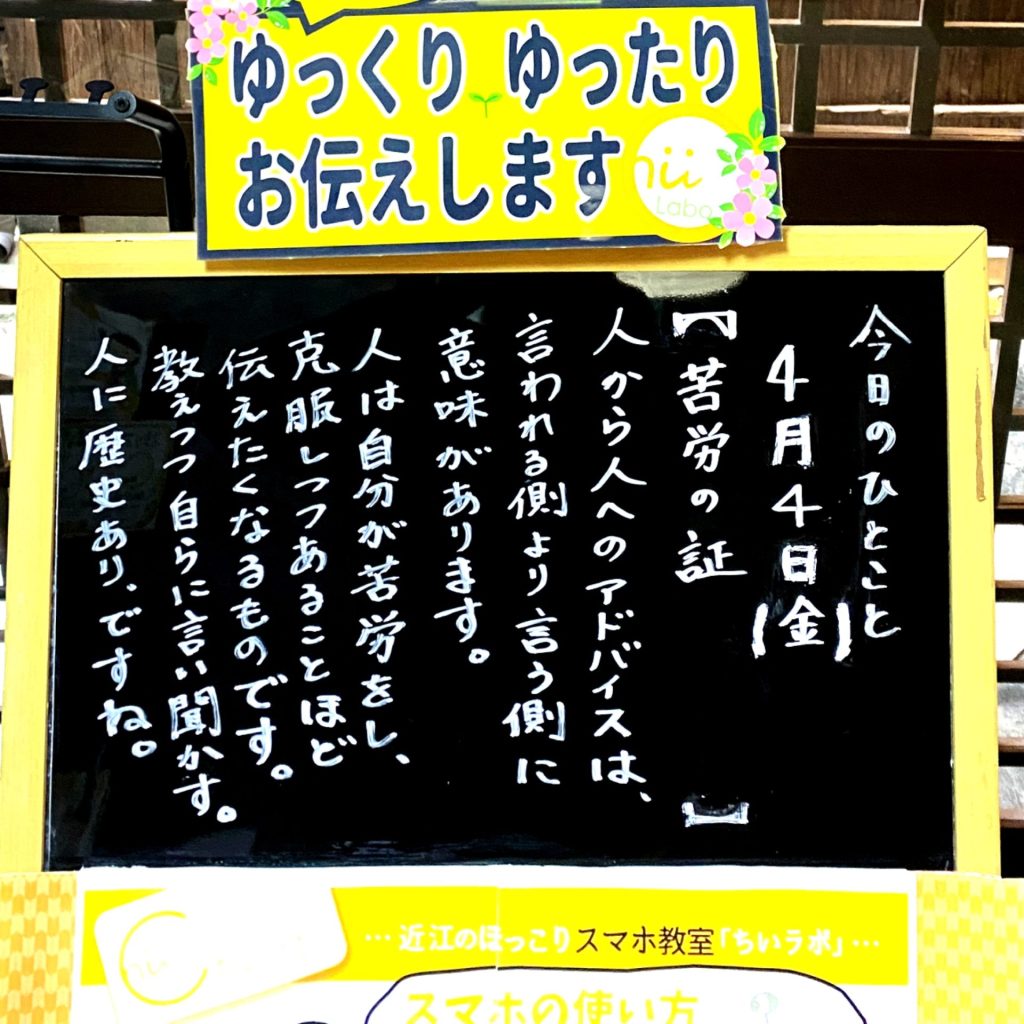 ゆっくり ゆったり
お伝えします
Labo
今日のひとこと
4月4日(金)
【苦労の証】
人から人へのアドバイスは、
言われる側より言う側に
意味があります。
人は自分が苦労をし、
克服しつつあることほど
伝えたくなるものです。
教えつつ自らに言い聞かす。
人に歴史あり、ですね。
…近江のほっこりスマホ教室「ちいラボ」…
スマホの使い方